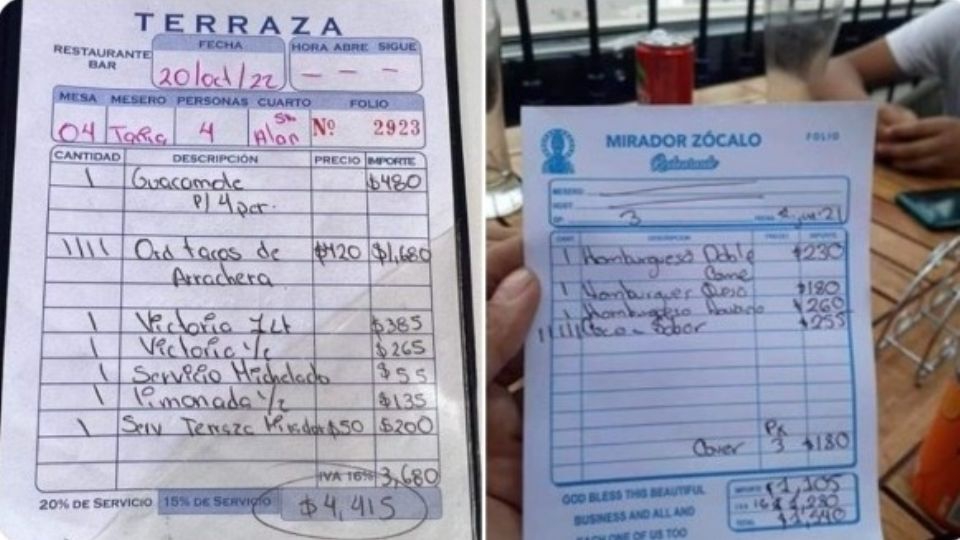 TERRAZA
RESTAURANTE BAR
FECHA
20/oct/22
HORA ABRE SIGUE
— — —
MESA MESERO PERSONAS CUARTO FOLIO
04 4 Sr. Alan Nº 2923
CANTIDAD DESCRIPCIÓN PRECIO IMPORTE
1 Guacamole $480
P/ 4 per.
1111 Ord tacos de $420 $1,680
Arrachera
1 Victoria Lt $385
1 Victoria 1/2 $265
1 Servicio Michelado $55
1 Limonada 1/2 $135
1 Serv Terraza Mirador $50 $200
IVA 16% 3,680
20% DE SERVICIO 15% DE SERVICIO $4,415
MIRADOR ZÓCALO
Restaurante
FOLIO
MESERO:
3 FECHA 21
CANT. DESCRIPCION PRECIO IMPORTE
1 Hamburguesa Doble $230
Carne
1 Hamburgues Queso $180
1 Hamburguesa $260
11111 Coca - Sabor $255
Cover Px 3 $180
GOD BLESS THIS BEAUTIFUL
BUSINESS AND ALL AND
EACH ONE OF US TOO
IMPORTE $1,105
16 $1,280
TOTAL $1,540